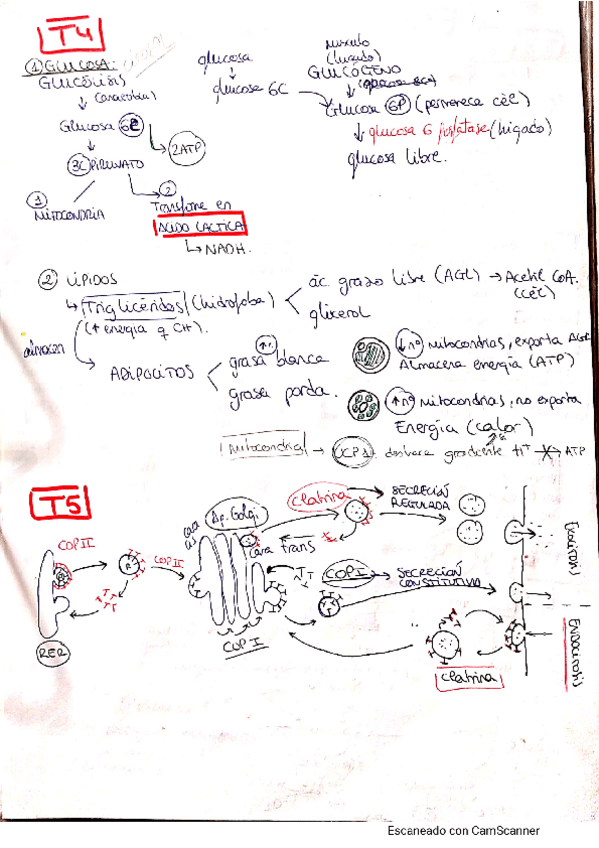 T4
① GLUCOSA:
GLUCÓLISIS
↓ (anaerobia)
Glucosa 6C
2ATP
3C PIRUVATO
1
MITOCONDRIA
2
Transforme en
ÁCIDO LÁCTICA
↳ NADH.
glucosa
↓
glucosa 6C
músculo
(hígado)
GLUCÓGENO
↓
Glucosa 6P (permerece cél)
↓ glucosa 6 fosfatasa (hígado)
glucosa libre.
② LÍPIDOS
↳ Triglicéridos (hidrófoba)
(↑ energía q CH).
ác. graso libre (AGL) → Acetil CoA.
(cél)
glicerol
almacen
ADIPOCITOS
grasa blanca
grasa parda.
↓ nº mitocondrias, exporta AGL
Almacena energía (ATP)
↑ nº mitocondrias, no exporta
Energía (calor)
Mitocondrial → UCP1 desvara gradiente H+ → ATP
T5
COP II
COP II
RER
cara cis
Ap. Golgi
cara trans
COP I
Clatrina
SECRECIÓN
REGULADA
COP I
SECRECIÓN
CONSTITUTIVA
Clatrina
EXOCITOSIS
ENDOCITOSIS
Escaneado con CamScanner